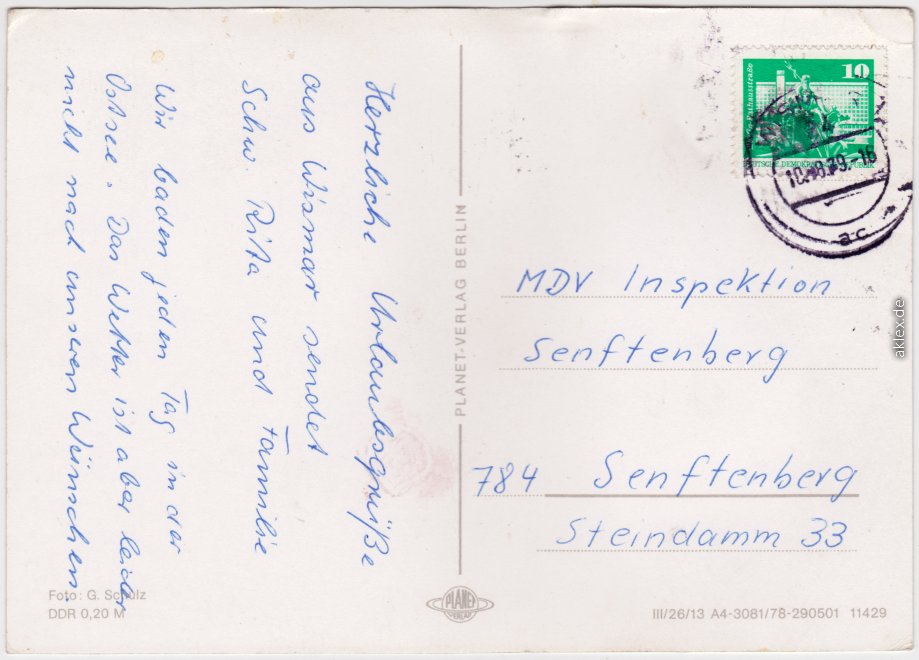 Herzliche Urlaubsgrüße
aus Wismar sendet
Schw. Rita und Familie
Wir baden jeden Tag in der
Ostsee. Das Wetter ist aber leider
nicht nach unseren Wünschen.
Foto: G. Schulz
DDR 0,20 M
PLANET-VERLAG BERLIN
PLANET
VERLAG
10
Rathausstraße
DEUTSCHE DEMOKRATISCHE REPUBLIK
10.-8.79.-16
ac
MDV Inspektion
Senftenberg
784 Senftenberg
Steindamm 33
III/26/13 A4-3081/78-290501 11429
aklex.de